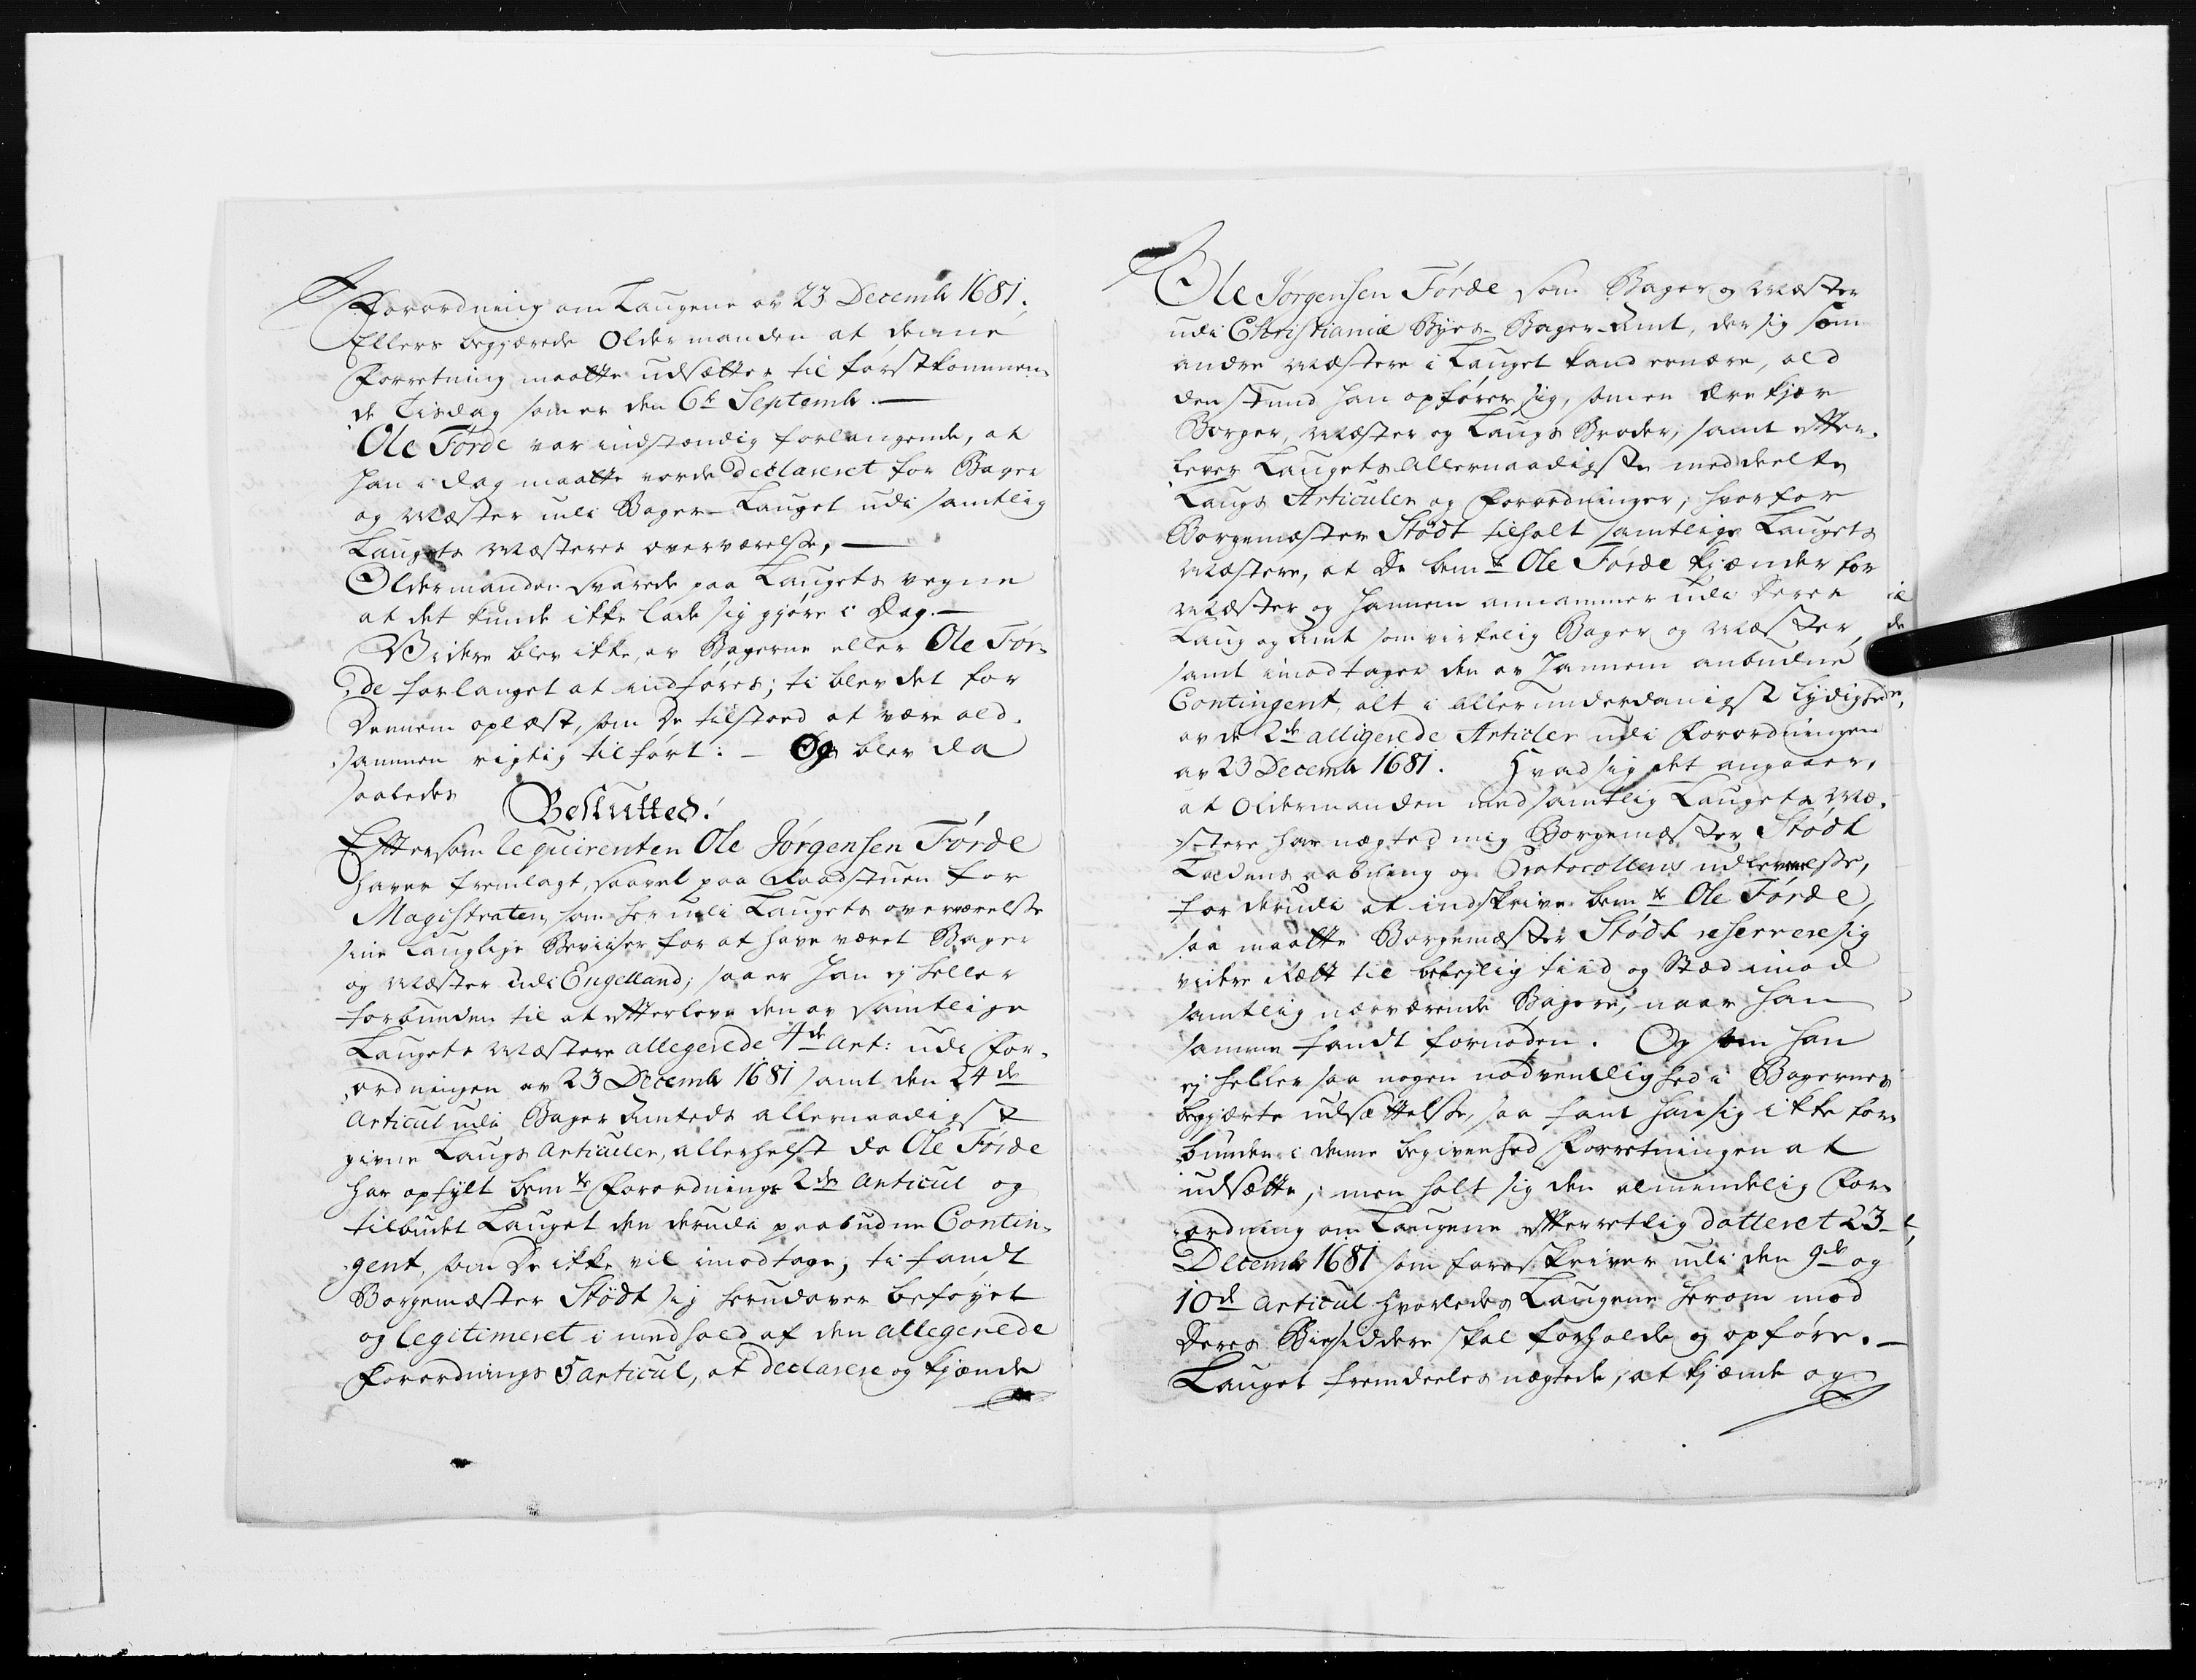 Forordning om Laugene av 23 Decembr 1681.
Ellers begjærede Oldermanden at denne
Forretning maatte udsættes til førstkommen-
de Tisdag som er den 6te Septembr. —
Ole Førde var indstændig forlangende, at
han i dag maatte vorde declareret for Bager
og Mæster udi Bager-Lauget udi samtlig
Laugets Mæsteres overværelse, —
Oldermanden svarede paa Laugets vegne
at det kunde ikke lade sig gjøre i Dag. —
Videre blev ikke, av Bagerne eller Ole Før-
de forlanget at indføres; ti blev det for
Dennem oplæst, som De tilstoed at være ald-
sammen rigtig tilført: — Og blev da
saaledes
Besluttet!
Eftersom Requirenten Ole Jørgensen Førde
haver fremlagt, saavel paa Raadstuen for
Magistraten, som her udi Laugets overværelse
sine lauglige Beviiser for at have været Bager
og Mæster udi Engelland; saa er han ej heller
forbunden til at efterleve den av samtlige
Laugets Mæstere allegerede 4de Art: udi For-
ordningen av 23 Decembr 1681 samt den 24de
Articul udi Bager Amtets allernaadigst
givne Laugs Articuler, allerhelst da Ole Førde
har opfylt bemte Forordnings 2den Articul og
tilbudet Lauget den derudi paabudne Contin-
gent, som De ikke vil imodtage; ti fandt
Borgemæster Stødt sig herudover beføyet
og legitimeret i medhold af den allegerede
Forordnings 5 Articul, at declarere og kjænde
Ole Jørgensen Førde som Bager og Mæster
udi Christianiæ Byes-Bager-Amt, der sig som
andre Mæstere i Lauget kand ernære, ald
den stund han opfører sig, som en ærekjær
Borger, Mæster og Laugs Broder, samt efter-
lever Laugets allernaadigste meddeelte
Laugs Articuler og Forordninger; hvorfor
Borgemæster Stødt tilholt samtlige Laugets
Mæstere, at De bemte Ole Førde kjænder for
Mæster og hannem annammer udi Deres
Laug og Amt som virkelig Bager og Mæster,
samt imodtager den av hannem anbudne
Contingent, alt i allerunderdanigst Lydighed
av de 2de alligerede Articler udi Forordningen
av 23 Decembr 1681. Hvad sig det angaaer,
at Oldermanden med samtlig Laugets Mæ-
stere har nægted mig Borgemæster Stødt
Ladens aabning og Protocollens udleverelse,
for derudi at indskrive bemte Ole Førde,
saa maatte Borgemæster Stødt reservere sig
videre Rætt til beleylig tiid og Stæd imod
samtlig nærværende Bagere, naar han
samme fandt fornøden. Og som han
ej heller saa nogen nødvendlighed i Bagernes
begjærte udsættelse, saa fant han sig ikke for-
bunden i denne begivenhed Forretningen at
udsætte; men holt sig den almindelig For-
ordning om Laugene efterretlig datteret 23
Decembr 1681 som foreskriver udi den 9de og
10de Articul hvorledes Laugene herom mod
Deres Bisiddere skal forholde og opføre. —
Lauget fremdeeles nægtede, at kjænde og